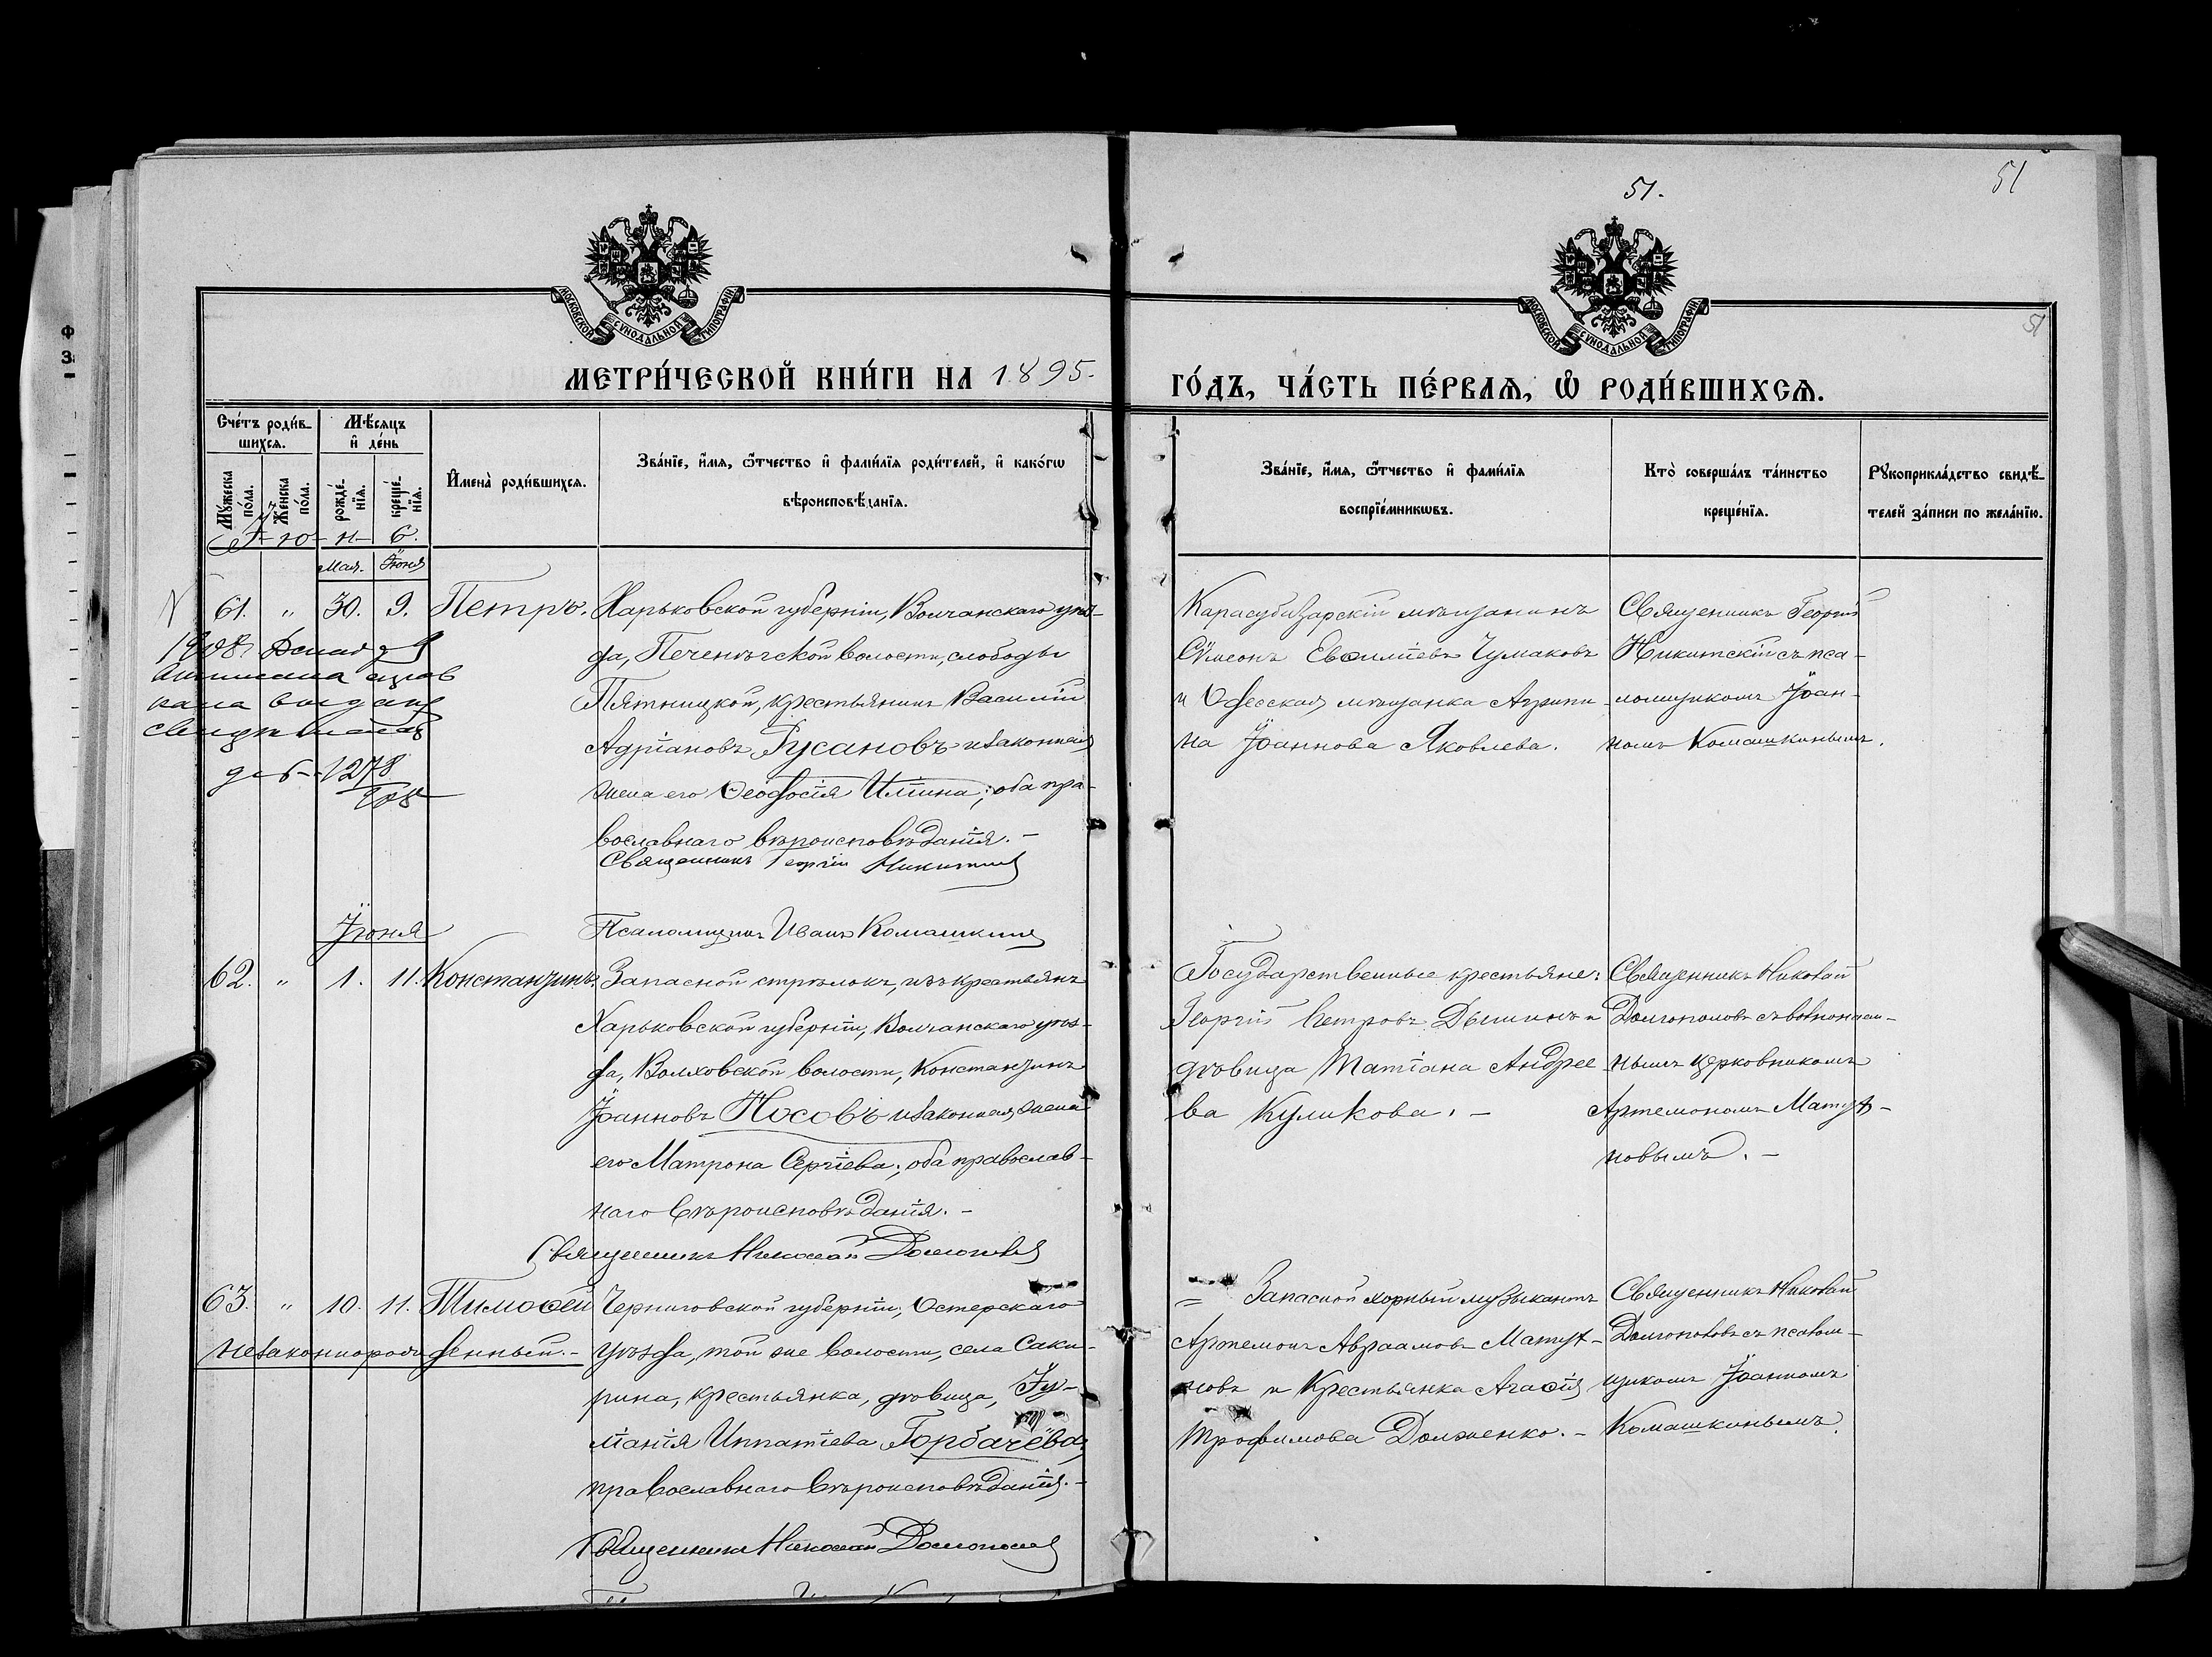 51.
51
51
МОСКОВСКОЙ СѴНОДАЛЬНОЙ ТИПОГРАФІИ
МОСКОВСКОЙ СѴНОДАЛЬНОЙ ТИПОГРАФІИ
МЕТРИ́ЧЕСКОЙ КНИ́ГИ НА 1895.
ГО́ДЪ, ЧА́СТЬ ПЕ́РВАЯ, Ѽ РОДИ́ВШИХСЯ.
Сче́тъ роди́в-
шихся.
Мѣ́сяцъ
и҆ де́нь
Мꙋ́жеска
по́ла.
Же́нска
по́ла.
рожде́-
нїя.
креще́-
нїя.
И҆мена̀ роди́вшихся.
Зва́нїе, и҆́мя, ѻ҆́тчество и҆ фами́лїя роди́телей, и҆ како́гѡ
вѣроисповѣ́данїя.
Зва́нїе, и҆́мя, ѻ҆́тчество и҆ фами́лїя
воспрїе́мникѡвъ.
Кто̀ соверша́лъ та́инство
креще́нїя.
Рꙋкоприкла́дство свидѣ́-
телей за́писи по жела́нїю.
Мая. Іюня
61. " 30. 9. Петръ. Харьковской губерніи, Волчанскаго уѣз-
да, Печенѣгской волости, слободы
Пятницкой, крестьянинъ Василій
Адріановъ Русановъ и законная
жена его Ѳеодосія Иліина; оба пра-
вославнаго вѣроисповѣданія. -
Священникъ Георгій Никитскій
Псаломщикъ Иванъ Комашкинъ
Карасубазарскій мѣщанинъ
Сѵмеонъ Чумаковъ
и Одесская мѣщанка Агрипи-
на Іоаннова Яковлева.
Священникъ Георгій
Никитскій съ пса-
ломщикомъ Іоан-
номъ Комашкинымъ.
1908
1278
Іюня
62. " 1. 11. Константинъ. Запасной стрѣлокъ, изъ крестьянъ
Харьковской губерніи, Волчанскаго уѣз-
да, Волховской волости, Константинъ
Іоанновъ Носовъ и законная жена
его Матрона Сергіева; оба православ-
наго вѣроисповѣданія. -
Священникъ Николай Долгополовъ
Государственные крестьяне:
Георгій Петровъ Дышинъ и
дѣвица Татіана Андрее-
ва Куликова. -
Священникъ Николай
Долгополовъ съ вольнонаем-
нымъ церковникомъ
Артемономъ Матут-
новымъ. -
63. " 10. 11. Тимоѳей
незаконнорожденный. -
Черниговской губерніи, Остерскаго
уѣзда, той же волости, села Саки-
рина, крестьянка, дѣвица, Іу-
ліанія Ипатіева Горбачёва,
православнаго вѣроисповѣданія. -
Священникъ Николай Долгополовъ
= Запасной хорный музыкантъ
Артемонъ Авраамовъ Матут-
новъ и крестьянка Агаѳія
Трофимова Долженко. -
Священникъ Николай
Долгополовъ съ псалом-
щикомъ Іоанномъ
Комашкинымъ.